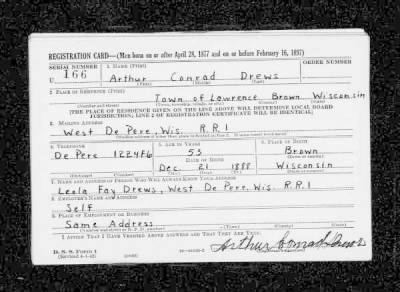 REGISTRATION CARD—(Men born on or after April 28, 1877 and on or before February 16, 1897)
SERIAL NUMBER 1. NAME (Print) ORDER NUMBER
U 166 Arthur Conrad Drews
2. PLACE OF RESIDENCE (Print)
Town of Lawrence Brown Wisconsin
(Number and street) (Town, township, village, or city) (County) (State)
[THE PLACE OF RESIDENCE GIVEN ON THE LINE ABOVE WILL DETERMINE LOCAL BOARD
JURISDICTION; LINE 2 OF REGISTRATION CERTIFICATE WILL BE IDENTICAL]
3. MAILING ADDRESS
West De Pere, Wis. R.R.1
[Mailing address if other than place indicated on line 2. If same insert word same]
4. TELEPHONE 5. AGE IN YEARS 6. PLACE OF BIRTH
De Pere 1224F6 53 Brown
DATE OF BIRTH (Town or county)
Dec 21 1888 Wisconsin
(Exchange) (Number) (Mo.) (Day) (Yr.) (State or country)
7. NAME AND ADDRESS OF PERSON WHO WILL ALWAYS KNOW YOUR ADDRESS
Leola Fay Drews, West De Pere, Wis. R.R.1
8. EMPLOYER'S NAME AND ADDRESS
Self
9. PLACE OF EMPLOYMENT OR BUSINESS
Same Address
(Number and street or R. F. D. number) (Town) (County) (State)
I AFFIRM THAT I HAVE VERIFIED ABOVE ANSWERS AND THAT THEY ARE TRUE.
D. S. S. Form 1
(Revised 4-1-42) (over) Arthur Conrad Drews